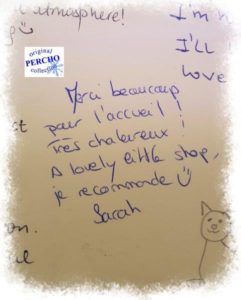 atmosphere!
I'm
I'll
love
original
PERCHO
collection
Merci beaucoup
pour l'accueil !
Très chaleureux !
A lovely little shop,
je recommande
Sarah